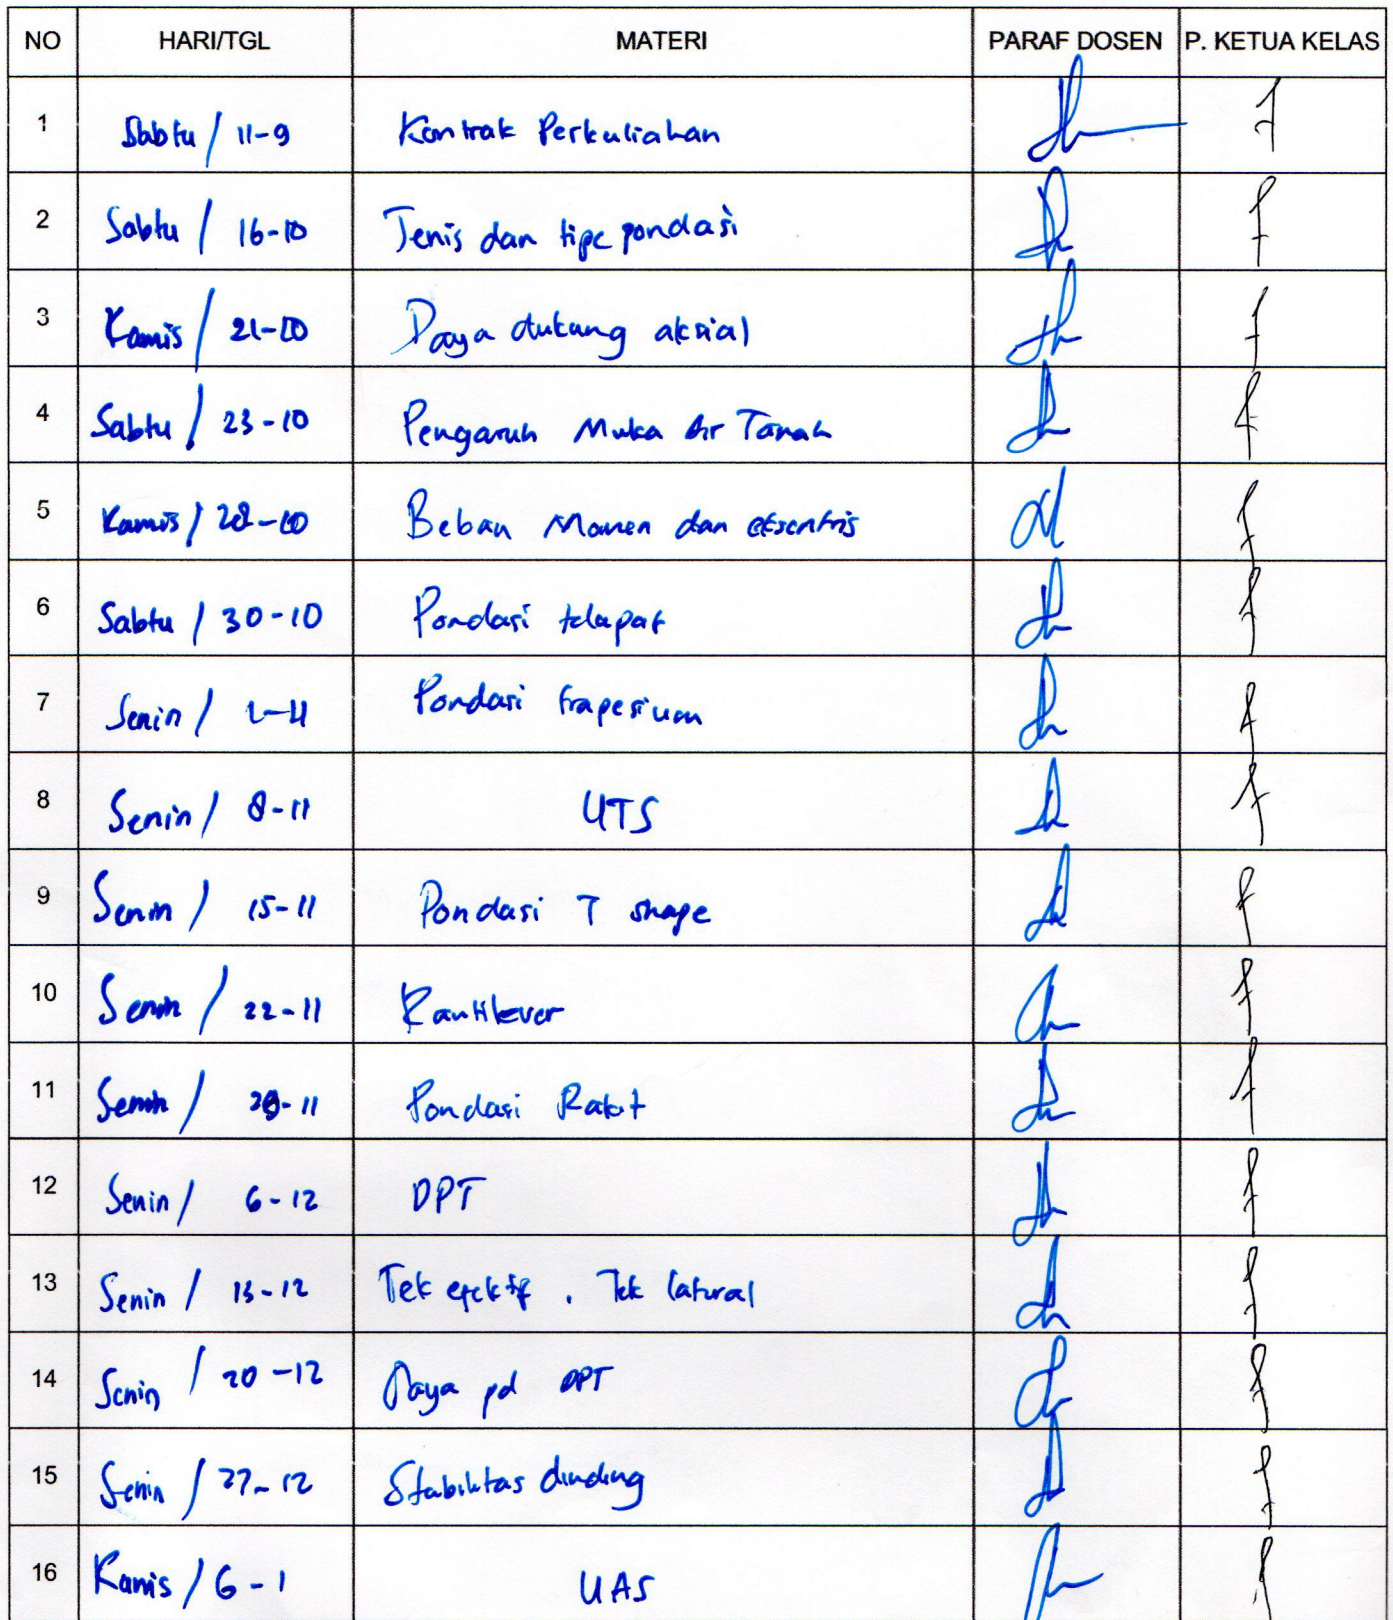 NO HARI/TGL MATERI PARAF DOSEN P. KETUA KELAS
1 Sabtu / 11-9 Kontrak Perkuliahan
2 Sabtu / 16-10 Jenis dan tipe pondasi
3 Kamis / 21-10 Daya dukung aksial
4 Sabtu / 23-10 Pengaruh Muka Air Tanah
5 Kamis / 28-10 Beban Momen dan eksentris
6 Sabtu / 30-10 Pondasi telapak
7 Senin / 1-11 Pondasi trapesium
8 Senin / 8-11 UTS
9 Senin / 15-11 Pondasi T shape
10 Senin / 22-11 Kantilever
11 Senin / 29-11 Pondasi Rakit
12 Senin / 6-12 DPT
13 Senin / 13-12 Tek efektif . Tek lateral
14 Senin / 20-12 Gaya pd DPT
15 Senin / 27-12 Stabilitas dinding
16 Kamis / 6-1 UAS